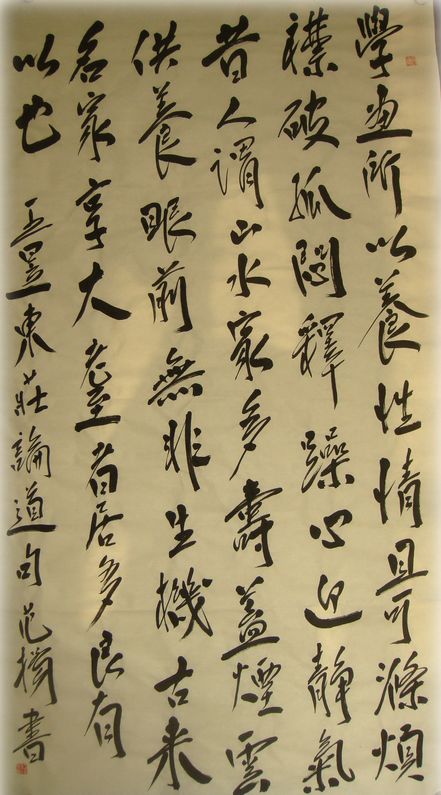 學畫所以養性情且可滌煩
襟破孤悶釋躁心迎靜氣
昔人謂山水家多壽蓋煙雲
供養眼前無非生機古來
名家享大耋者居多良有
以也 王昱東莊論道句 范書